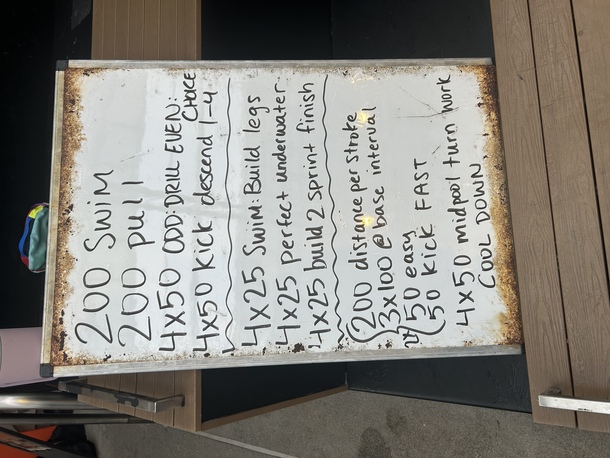 200 Swim
200 pull
4x50 ODD: DRILL EVEN: CHOICE
4x50 Kick descend 1-4
4x25 Swim: Build legs
4x25 perfect underwater
4x25 build 2 sprint finish
200 distance per stroke
3x100 @ base interval
2x
50 easy
50 Kick FAST
4x50 midpool turn work
COOL DOWN